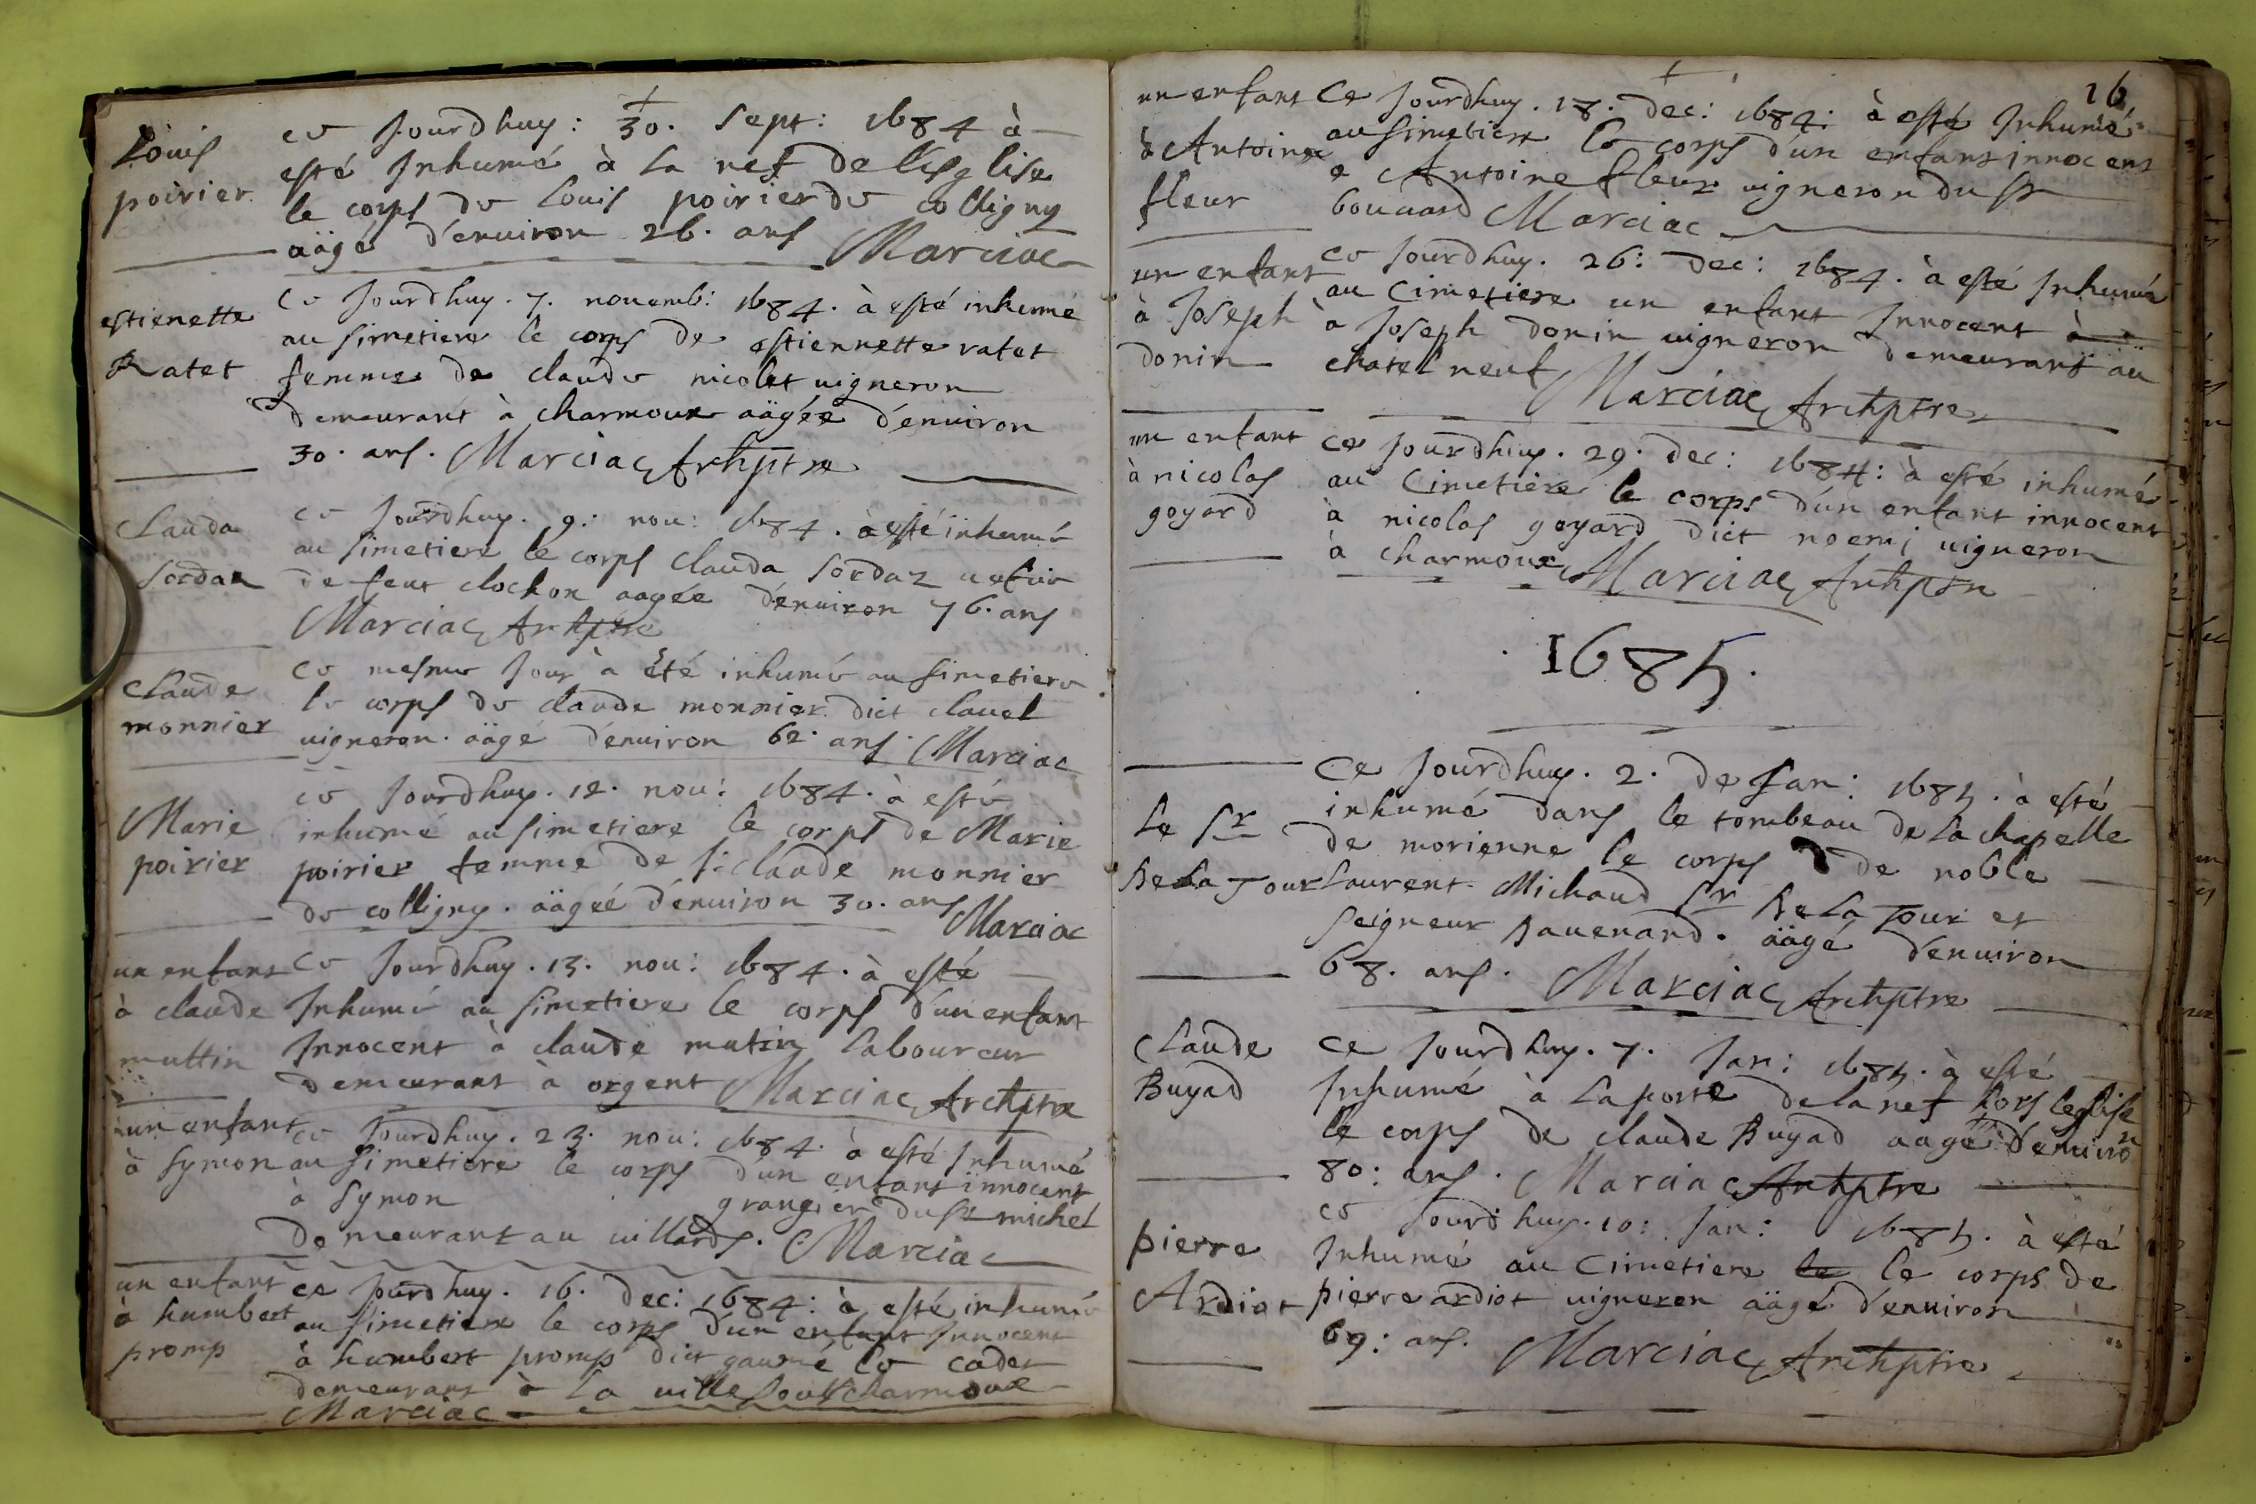 Louis
poirier
ce Jourdhuy: 30. Sept: 1684 à
esté Inhumé à la nef de lisglise
le corps de Louis poirier de Colligny
aägé d'enuiron 26. ans Marciac
estienette
Ratet
Ce Jourdhuy. 7. nouemb: 1684. à esté inhumé
au simetiere le corps de estiennette ratet
femme de claude nicolet uigneron
demeurant à charmoux aägée d'enuiron
30. ans. Marciac Archptre
Clauda
Sordaz
ce Jourdhuy. 9. nou: 1684. à esté inhumé
au simetiere le corps Clauda Sordaz uefue
de feut clochon aagée d'enuiron 76. ans
Marciac Archptre
Claude
monnier
ce mesme Jour à été inhumé au simetiere
le corps de claude monnier dict clauel
uigneron. aägé d'enuiron 62. ans. Marciac
Marie
poirier
ce Jourdhuy. 12. nou: 1684. à esté
inhumé au simetiere le corps de Marie
poirier femme de f: claude monnier
de colligny. aägéé d'enuiron 30. ans
Marciac
un enfant
à claude
muttin
ce Jourdhuy. 13. nou: 1684. à esté
Inhumé au simetiere le corps d'un enfant
Innocent à claude mutin Laboureur
demeurant à orgent Marciac Archptre
un enfant
à Symon
ce Jourdhuy. 23. nou: 1684. à esté Inhumé
au simetiere le corps d'un enfant innocent
à Symon grangier du Sr michel
Demeurant au uillards. Marciac
un enfant
à humbert
promp
ce Jourdhuy. 16. Dec: 1684: à esté inhumé
au simetiere le corps d'un enfant Innocent
à humbert promp dict gaumé le cadet
demeurant à La uille sous charmoux
Marciac
16
un enfant
à Antoine
fleur
Ce Jourdhuy. 18. Dec: 1684: à esté Inhumé
au simetiere le corps d'un enfant innocent
a Antoine fleur uigneron du Sr
bouuard Marciac
un enfant
à Joseph
donin
ce Jourdhuy. 26: Dec: 1684. à esté Inhumé
au Cimetiere un enfant Innocent à
à Joseph donin uigneron demeurant au
chatel neuf Marciac Archptre
un enfant
à nicolas
goyard
ce Jourdhuy. 29. dec: 1684: à esté inhumé
au Cimetiere le corps d'un enfant innocent
à nicolas goyard dict noemj uigneron
à charmoux Marciac Archptre
1685.
Le Sr
De La Tour
Ce Jourdhuy. 2. de Jan: 1685. à esté
inhumé dans le tombeau de la chapelle
de morienne le corps de noble
Laurent Michaud Sr De La Tour et
seigneur Dauenard. aägé d'enuiron
68. ans. Marciac Archptre
Claude
Buyad
Ce Jourdhuy. 7. Jan: 1685. à esté
Inhumé à la porte de la nef hors leglise
le corps de claude Buyad aagé d'enuiron
80: ans. Marciac Archptre
pierre
Ardiot
ce Jourdhuy. 10: Jan: 1685. à esté
Inhumé au Cimetiere le le corps de
pierre ardiot uigneron aägé d'enuiron
69: ans. Marciac Archptre